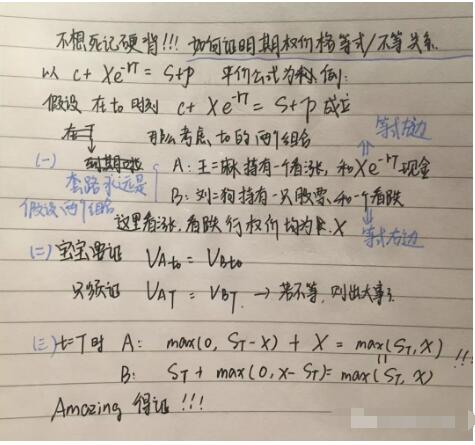 不想死记硬背!!! 如何证明期权价格等式/不等关系.
以 c+ Xe^-rT = S+p 平价公式为例:
假设 在 t0 时刻 c+ Xe^-rT = S+p 成立
那么考虑 t0 的两个组合
等式左边
(一) 套路永远是 假设两个组合
A: 王二麻持有一个看涨, 和 Xe^-rT 现金
B: 刘二狗持有一只股票 和一个看跌
这里看涨, 看跌 行权价均为 X
等式右边
(二) 宝宝要证 VAt0 = VBt0
只须证 VAT = VBT → 若不等, 则出大事!
(三) t=T时 A: max(0, ST-X) + X = max(ST, X) !!!
B: ST + max(0, X-ST) = max(ST, X)
Amazing 得证 !!!